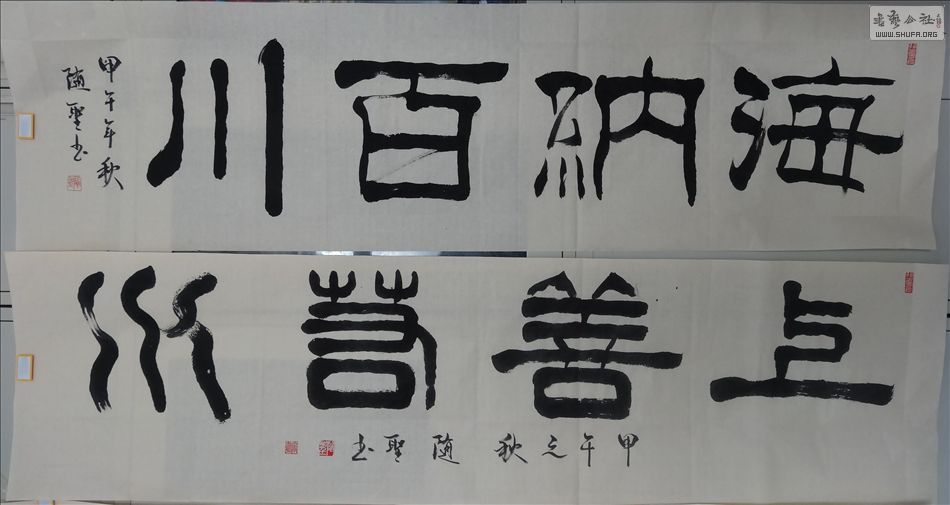 書藝公社
WWW.SHUFA.ORG
海納百川
甲午年秋
随聖书
上善若水
甲午之秋 随聖书